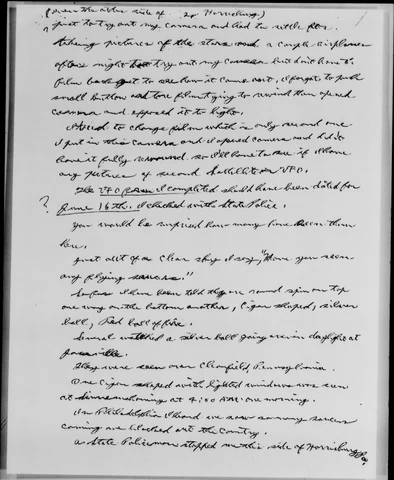 (over the other side of Harrisburg)
first to try out my camera and had to settle for
taking pictures of the stars and a couple airplanes
at night to try out my camera but didn't have
film back yet to see how it came out. I forgot to push
small button and tore film trying to rewind then opened
camera and exposed it to light.
I tried to change film which is only second one
I put in this camera and I opened camera and didn't
have it fully rewound so I'll have to see if I have
any pictures of second Satellite or UFO.
The UFO form I completed should have been dated for
? June 16th. I checked with State Police.
You would be surprised how many have seen them
here.
Just out of a clear sky I say, "Have you seen
any flying saucers."
So far I have been told they are round spin on top
one way on the bottom another, Cigar shaped, silver
ball, Red ball of fire.
Several watched a silver ball going over in daylight at
They were seen over Clearfield, Pennsylvania.
One Cigar shaped with lighted windows was seen
at Sinnemahoning at 4:00 AM one morning.
In Philadelphia I heard we saw so many saucers
coming we blacked out the Country.
A State Policeman stopped on this side of Harrisburg, Pa.